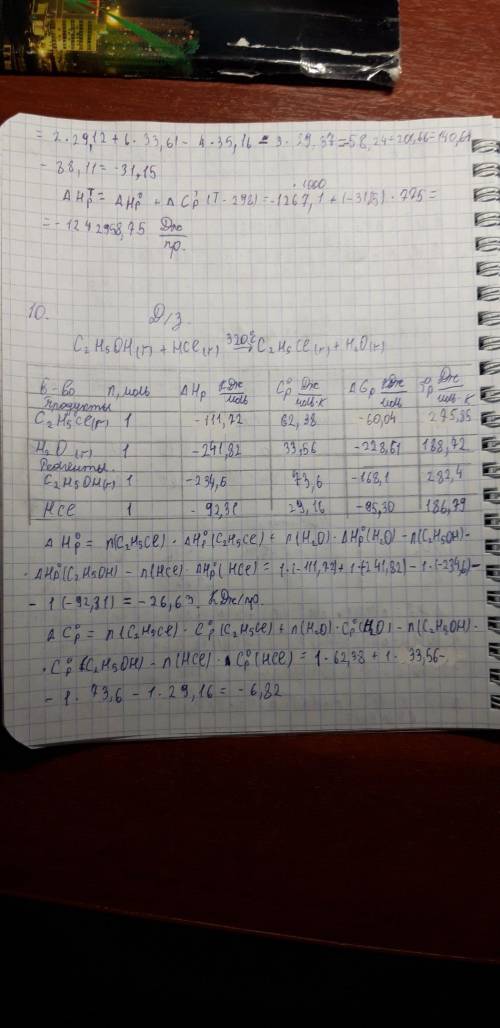 = 2·29,12 + 6·33,61 - 4·35,16 - 3·29,37 = 58,24 + 201,66 - 140,64
- 88,11 = -31,15
·1000
ΔHрᵀ = ΔHр° + ΔCр°(T-298) = -1267,1 + (-31,15)·775 =
= -1242958,75 Дж/пр.
10. Д/з.
C₂H₅OH(г) + HCl(г) 320° ⇄ C₂H₅Cl(г) + H₂O(г)
В-во n, моль ΔHр кДж/моль Cр° Дж/моль·К ΔGр кДж/моль Sр° Дж/моль·К
Продукты
C₂H₅Cl(г) 1 -111,72 62,38 -60,04 275,85
H₂O(г) 1 -241,82 33,56 -228,61 188,72
Реагенты.
C₂H₅OH(г) 1 -234,6 73,6 -168,1 282,4
HCl 1 -92,31 29,16 -95,30 186,79
ΔHр° = n(C₂H₅Cl)·ΔHр°(C₂H₅Cl) + n(H₂O)·ΔHр°(H₂O) - n(C₂H₅OH)·
·ΔHр°(C₂H₅OH) - n(HCl)·ΔHр°(HCl) = 1·(-111,72) + 1·(-241,82) - 1·(-234,6) -
- 1(-92,31) = -26,63 кДж/пр.
ΔCр° = n(C₂H₅Cl)·Cр°(C₂H₅Cl) + n(H₂O)·Cр°(H₂O) - n(C₂H₅OH)·
·Cр°(C₂H₅OH) - n(HCl)·Cр°(HCl) = 1·62,38 + 1·33,56 -
- 1·73,6 - 1·29,16 = -6,82